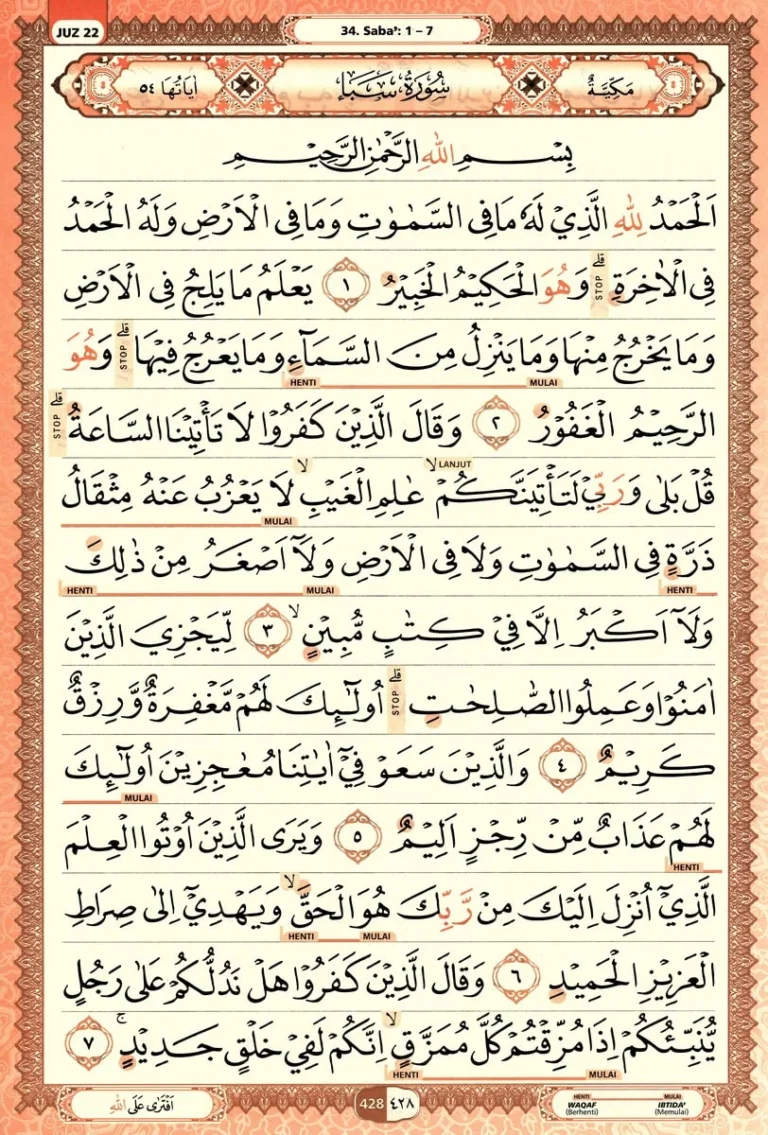 JUZ 22
34. Saba': 1 – 7
مَكِّيَّةٌ سُوْرَةُ سَبَإٍ اٰيَاتُهَا ٥٤
بِسْمِ اللّٰهِ الرَّحْمٰنِ الرَّحِيْمِ
اَلْحَمْدُ لِلّٰهِ الَّذِيْ لَهٗ مَا فِى السَّمٰوٰتِ وَمَا فِى الْاَرْضِ وَلَهُ الْحَمْدُ
فِى الْاٰخِرَةِ ۗ STOP وَهُوَ الْحَكِيْمُ الْخَبِيْرُ ١ يَعْلَمُ مَا يَلِجُ فِى الْاَرْضِ
وَمَا يَخْرُجُ مِنْهَا وَمَا يَنْزِلُ مِنَ السَّمَاۤءِ وَمَا يَعْرُجُ فِيْهَا ۗ STOP وَهُوَ
MULAI HENTI
الرَّحِيْمُ الْغَفُوْرُ ٢ وَقَالَ الَّذِيْنَ كَفَرُوْا لَا تَأْتِيْنَا السَّاعَةُ ۗ STOP
LANJUT
قُلْ بَلٰى وَرَبِّيْ لَتَأْتِيَنَّكُمْۙ عٰلِمِ الْغَيْبِۙ لَا يَعْزُبُ عَنْهُ مِثْقَالُ
MULAI
ذَرَّةٍ فِى السَّمٰوٰتِ وَلَا فِى الْاَرْضِ وَلَآ اَصْغَرُ مِنْ ذٰلِكَ
HENTI MULAI HENTI
وَلَآ اَكْبَرُ اِلَّا فِيْ كِتٰبٍ مُّبِيْنٍۙ ٣ لِّيَجْزِيَ الَّذِيْنَ
اٰمَنُوْا وَعَمِلُوا الصّٰلِحٰتِ ۗ STOP اُولٰۤىِٕكَ لَهُمْ مَّغْفِرَةٌ وَّرِزْقٌ
كَرِيْمٌ ٤ وَالَّذِيْنَ سَعَوْ فِيْٓ اٰيٰتِنَا مُعٰجِزِيْنَ اُولٰۤىِٕكَ
MULAI
لَهُمْ عَذَابٌ مِّنْ رِّجْزٍ اَلِيْمٌ ٥ وَيَرَى الَّذِيْنَ اُوْتُوا الْعِلْمَ
HENTI
الَّذِيْٓ اُنْزِلَ اِلَيْكَ مِنْ رَّبِّكَ هُوَ الْحَقَّۙ وَيَهْدِيْٓ اِلٰى صِرَاطِ
MULAI HENTI
الْعَزِيْزِ الْحَمِيْدِ ٦ وَقَالَ الَّذِيْنَ كَفَرُوْا هَلْ نَدُلُّكُمْ عَلٰى رَجُلٍ
يُّنَبِّئُكُمْ اِذَا مُزِّقْتُمْ كُلَّ مُمَزَّقٍۙ اِنَّكُمْ لَفِيْ خَلْقٍ جَدِيْدٍۚ ٧
MULAI HENTI
اَفْتَرٰى عَلَى اللّٰهِ
428 ٤٢٨
HENTI WAQAF (Berhenti)
MULAI IBTIDA' (Memulai)